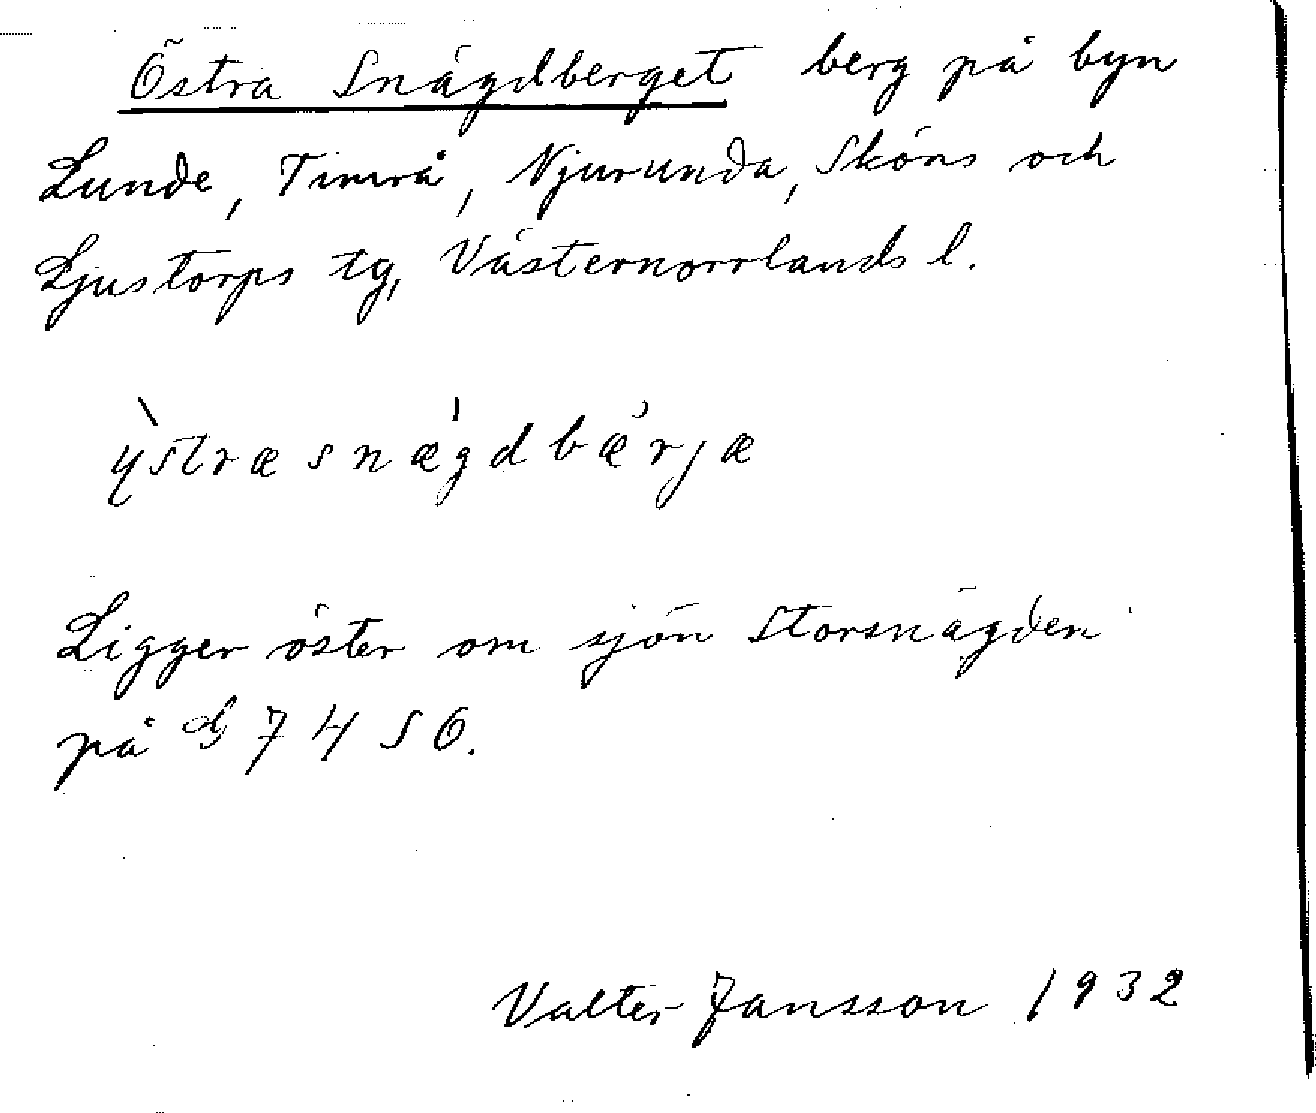 Östra Snägdberget berg på byn
Lunde, Timrå, Njurunda, Sköns och
Ljustorps tg, Västernorrlands l.
ỳstræsnǽgdbærjæ
Ligger öster om sjön Storsnägden
på G 74 SO.
Valter Jansson 1932